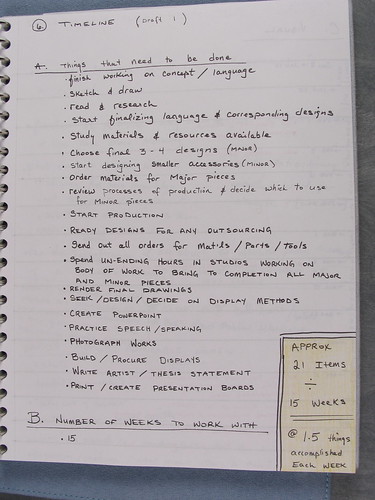 6. TIMELINE (Draft 1)
A. Things that need to be done
· finish working on concept / language
· sketch & draw
· read & research
· start finalizing language & corresponding designs
· Study materials & resources available
· Choose final 3-4 designs (MAJOR)
· start designing smaller accessories (MINOR)
· Order materials for Major pieces
· review processes of production & decide which to use
for MINOR pieces
· START PRODUCTION
· READY DESIGNS FOR ANY OUTSOURCING
· Send out all orders for Mat'ls / Parts / Tools
· Spend UN-ENDING HOURS IN STUDIOS WORKING ON
BODY OF WORK TO BRING TO COMPLETION ALL MAJOR
AND MINOR PIECES
· RENDER FINAL DRAWINGS
· SEEK / DESIGN / DECIDE ON DISPLAY METHODS
· CREATE POWERPOINT
· PRACTICE SPEECH / SPEAKING
· PHOTOGRAPH WORKS
· BUILD / PROCURE DISPLAYS
· WRITE ARTIST / THESIS STATEMENT
· PRINT / CREATE PRESENTATION BOARDS
B. NUMBER OF WEEKS TO WORK WITH
· 15
APPROX
21 Items
÷
15 Weeks
@ 1.5 things
accomplished
Each WEEK